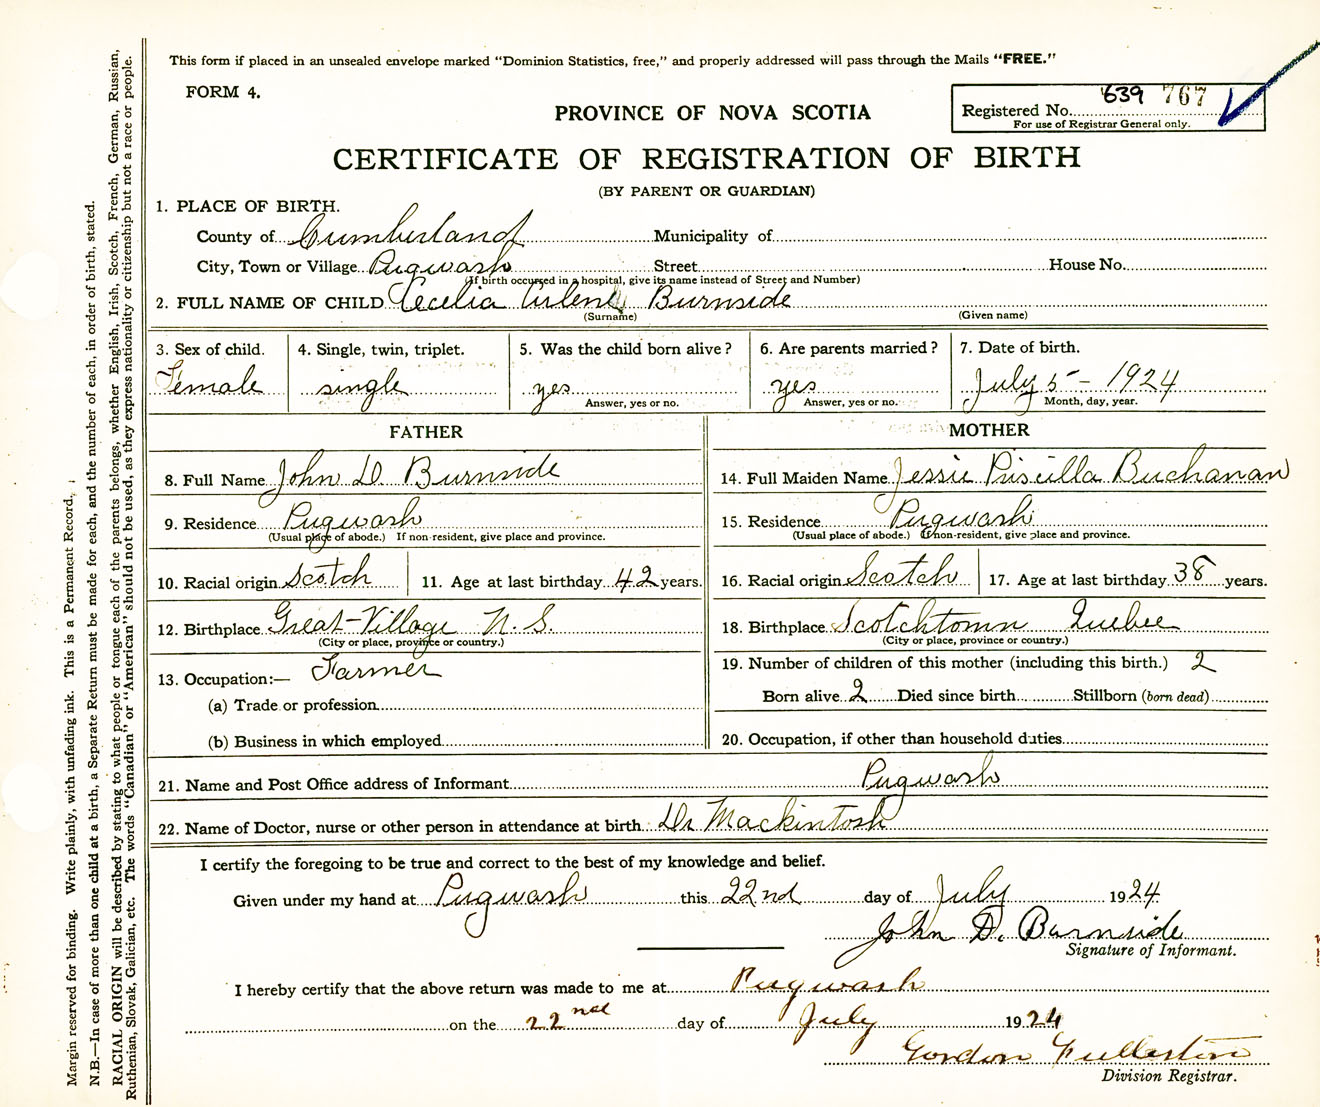 This form if placed in an unsealed envelope marked "Dominion Statistics, free," and properly addressed will pass through the Mails "FREE."
FORM 4.
639 767
Registered No.
For use of Registrar General only.
PROVINCE OF NOVA SCOTIA
CERTIFICATE OF REGISTRATION OF BIRTH
(BY PARENT OR GUARDIAN)
1. PLACE OF BIRTH.
County of Cumberland Municipality of
City, Town or Village Pugwash Street House No.
(If birth occurred in a hospital, give its name instead of Street and Number)
2. FULL NAME OF CHILD Cecelia Arlene Burnside
(Surname) (Given name)
3. Sex of child. 4. Single, twin, triplet. 5. Was the child born alive? 6. Are parents married? 7. Date of birth.
Female single yes yes July 5 - 1924
Answer, yes or no. Answer, yes or no. Month, day, year.
FATHER MOTHER
8. Full Name John D. Burnside 14. Full Maiden Name Jessie Priscilla Buchanan
9. Residence Pugwash 15. Residence Pugwash
(Usual place of abode.) If non-resident, give place and province. (Usual place of abode.) If non-resident, give place and province.
10. Racial origin Scotch 11. Age at last birthday 42 years. 16. Racial origin Scotch 17. Age at last birthday 38 years.
12. Birthplace Great-Village N.S. 18. Birthplace Scotchtown Quebec
(City or place, province or country.) (City or place, province or country.)
13. Occupation:— Farmer 19. Number of children of this mother (including this birth.) 2
(a) Trade or profession Born alive 2 Died since birth Stillborn (born dead)
(b) Business in which employed 20. Occupation, if other than household duties
21. Name and Post Office address of Informant Pugwash
22. Name of Doctor, nurse or other person in attendance at birth Dr Mackintosh
I certify the foregoing to be true and correct to the best of my knowledge and belief.
Given under my hand at Pugwash this 22nd day of July 1924.
John D. Burnside
Signature of Informant.
I hereby certify that the above return was made to me at Pugwash
on the 22nd day of July 1924
Gordon Fullerton
Division Registrar.
Margin reserved for binding. Write plainly, with unfading ink. This is a Permanent Record.
N.B.—In case of more than one child at a birth, a Separate Return must be made for each, and the number of each, in order of birth, stated.
RACIAL ORIGIN will be described by stating to what people or tongue each of the parents belongs, whether English, Irish, Scotch, French, German, Russian,
Ruthenian, Slovak, Galician, etc. The words "Canadian" or "American" should not be used, as they express nationality or citizenship but not a race or people.